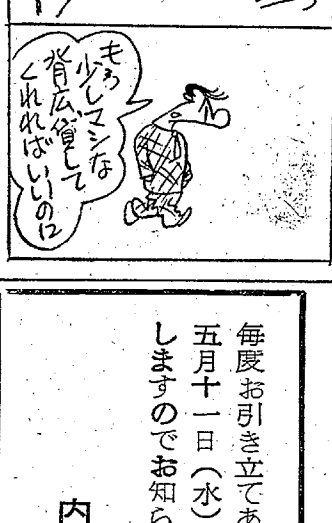 もう
少しマシな
背広貸して
くれればいいのに
毎度お引き立てあ
五月十一日（水）
しますのでお知ら
内